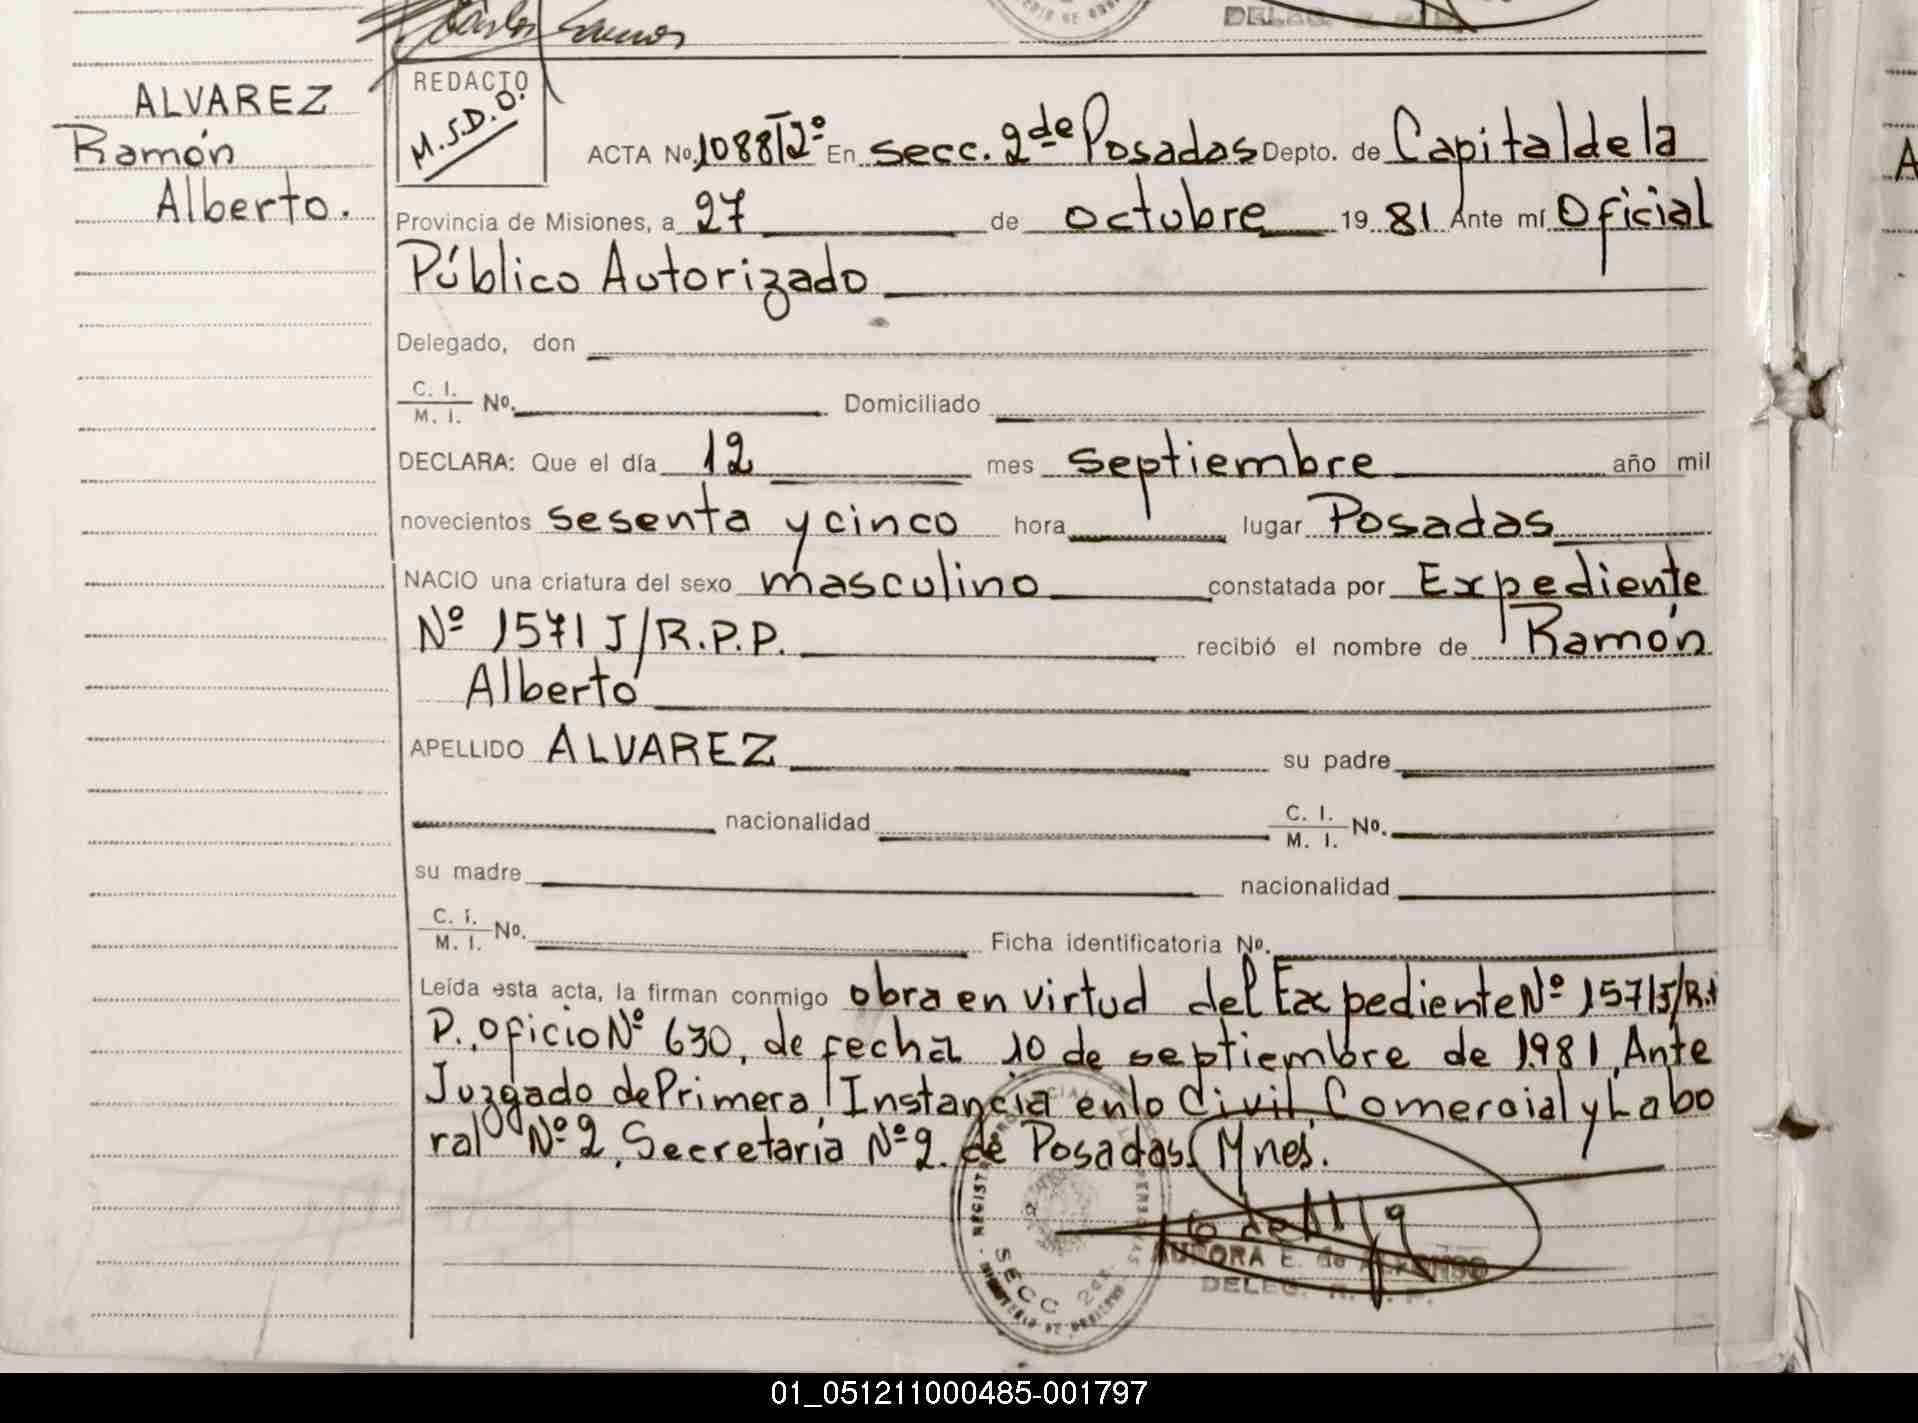 Carlos Ramos
DELEG.
ALVAREZ
Ramón
Alberto.
REDACTO
M.S.D.O.
ACTA No. 1088 T2º En secc. 2da Posadas Depto. de Capital de la
Provincia de Misiones, a 27 de octubre 19 81 Ante mí Oficial
Público Autorizado
Delegado, don
C. I. / M. I. No. Domiciliado
DECLARA: Que el día 12 mes septiembre año mil
novecientos sesenta y cinco hora lugar Posadas
NACIO una criatura del sexo masculino constatada por Expediente
Nº 1571 J/R.P.P. recibió el nombre de Ramón
Alberto
APELLIDO ALVAREZ su padre
nacionalidad C. I. / M. I. No.
su madre nacionalidad
C. I. / M. I. No. Ficha identificatoria No.
Leída esta acta, la firman conmigo obra en virtud del Expediente Nº 1571 J/R.P.
P., oficio Nº 630, de fecha 10 de septiembre de 1.981, Ante
Juzgado de Primera Instancia en lo Civil Comercial y Labo
ral Nº 2, Secretaría Nº 2. de Posadas Mnes.
AURORA E. de ALFONSO
DELEG. R. P. P.
SECC 2da.
MINISTERIO DE GOBIERNO
01_051211000485-001797